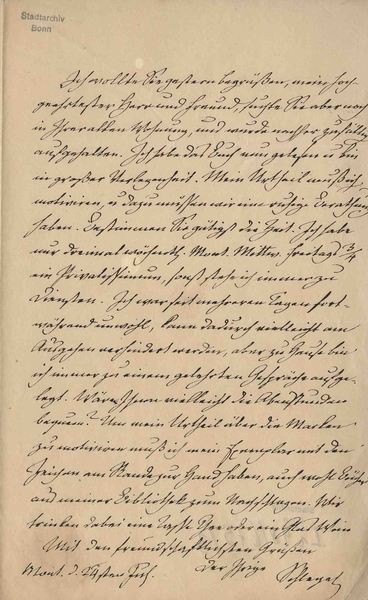 Stadtarchiv
Bonn
Ich wollte Sie gestern begrüßen, mein hoch-
geehrtester Herr und Freund, suchte Sie aber noch
in Ihrer alten Wohnung, und wurde nachher zufällig
aufgehalten. Ich habe das Buch nun gelesen u bin
in großer Verlegenheit. Mein Urtheil muß ich
motiviren, u dazu müssen wir eine ruhige Berathung
haben. Bestimmen Sie gütigst die Zeit. Ich habe
nur dreimal wöchentl. Mont. Mittw. Freitags 3/4
ein Privatissimum, sonst stehe ich immer zu
Diensten. Ich war seit mehreren Tagen fort-
während unwohl, kann dadurch vielleicht am
Ausgehen verhindert werden, aber zu Hause bin
ich immer zu einem gelehrten Gespräche aufge-
legt. Wären Ihnen vielleicht die Abendstunden
bequem? Um mein Urtheil über die
zu motiviren muß ich mein Exemplar mit den
Zeichen am Rande zur Hand haben, auch wohl Bücher
aus meiner Bibliothek zum Nachschlagen. Wir
trinken dabei eine Tasse Thee oder ein Glas Wein
Mit den freundschaftlichsten Grüßen
Mont. d. Der Ihrige
Schlegel